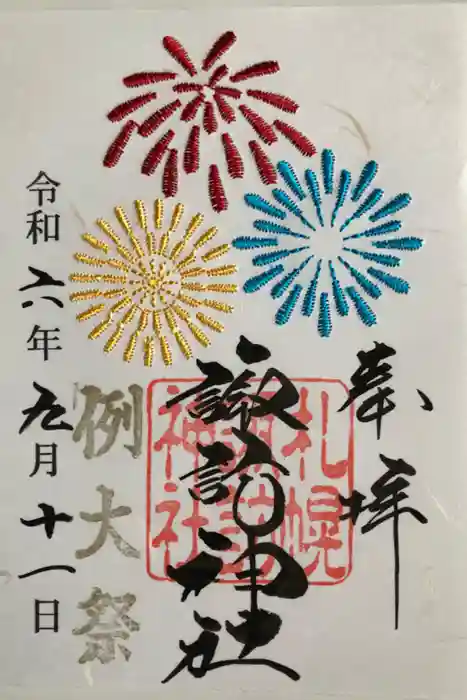 奉拝
札幌
諏訪
神社
諏訪神社
例大祭
令和六年九月十一日